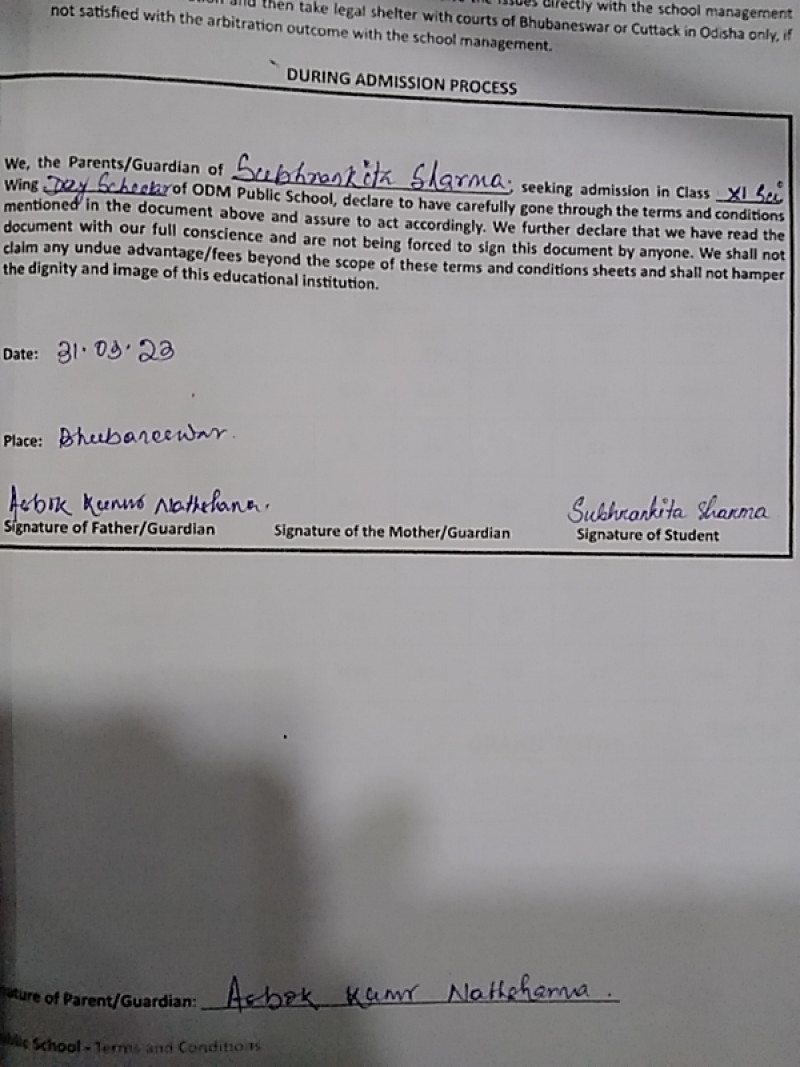 then take legal shelter with courts of Bhubaneswar or Cuttack in Odisha only, if
issues directly with the school management
not satisfied with the arbitration outcome with the school management.
DURING ADMISSION PROCESS
We, the Parents/Guardian of Subhrankita Sharma, seeking admission in Class XI Sci
Wing Day Scholar of ODM Public School, declare to have carefully gone through the terms and conditions
mentioned in the document above and assure to act accordingly. We further declare that we have read the
document with our full conscience and are not being forced to sign this document by anyone. We shall not
claim any undue advantage/fees beyond the scope of these terms and conditions sheets and shall not hamper
the dignity and image of this educational institution.
Date: 31.03.23
Place: Bhubaneswar.
Ashok Kumar
Signature of Father/Guardian Signature of the Mother/Guardian
Subhrankita Sharma
Signature of Student
of Parent/Guardian: Ashok Kumr
School - Terms and Conditions